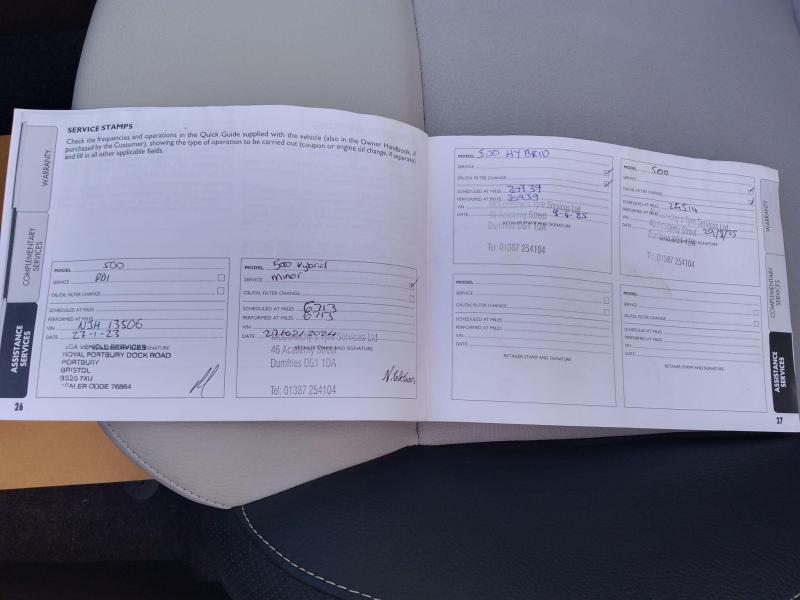 SERVICE STAMPS
Check the frequencies and operations in the Quick Guide supplied with the vehicle (also in the Owner Handbook, if
purchased by the Customer), showing the type of operation to be carried out (coupon or engine oil change, if separate)
and fill in all other applicable fields.
WARRANTY
COMPLEMENTARY
SERVICES
ASSISTANCE
SERVICES
MODEL 500
SERVICE PDI
OIL/OIL FILTER CHANGE
SCHEDULED AT MILES
PERFORMED AT MILES
VIN NJH 13506
DATE 27-1-23
VEHICLE SERVICES
ROYAL PORTBURY DOCK ROAD
PORTBURY
BRISTOL
BS20 7XU
DEALER CODE 76864
26
MODEL 500 Hybrid
SERVICE minor
OIL/OIL FILTER CHANGE
SCHEDULED AT MILES 6713
PERFORMED AT MILES 6713
VIN
DATE 27/02/2024
Tyre Services Ltd
RETAILER STAMP AND SIGNATURE
46 Academy Street
Dumfries DG1 1DA
Tel: 01387 254104
MODEL 500 HYBRID
SERVICE
OIL/OIL FILTER CHANGE
SCHEDULED AT MILES 20939
PERFORMED AT MILES 20939
VIN
Tyre Services Ltd
DATE 8-4-25
46 Academy Street
RETAILER STAMP AND SIGNATURE
Dumfries DG1 1DA
Tel: 01387 254104
MODEL 500
SERVICE
OIL/OIL FILTER CHANGE
SCHEDULED AT MILES 25514
PERFORMED AT MILES
VIN
Tyre Services Ltd
DATE
46 Academy Street
RETAILER STAMP AND SIGNATURE
Dumfries DG1 1DA
Tel: 01387 254104
MODEL
SERVICE
OIL/OIL FILTER CHANGE
SCHEDULED AT MILES
PERFORMED AT MILES
VIN
DATE
RETAILER STAMP AND SIGNATURE
MODEL
SERVICE
OIL/OIL FILTER CHANGE
SCHEDULED AT MILES
PERFORMED AT MILES
VIN
DATE
RETAILER STAMP AND SIGNATURE
WARRANTY
COMPLEMENTARY
SERVICES
ASSISTANCE
SERVICES
27